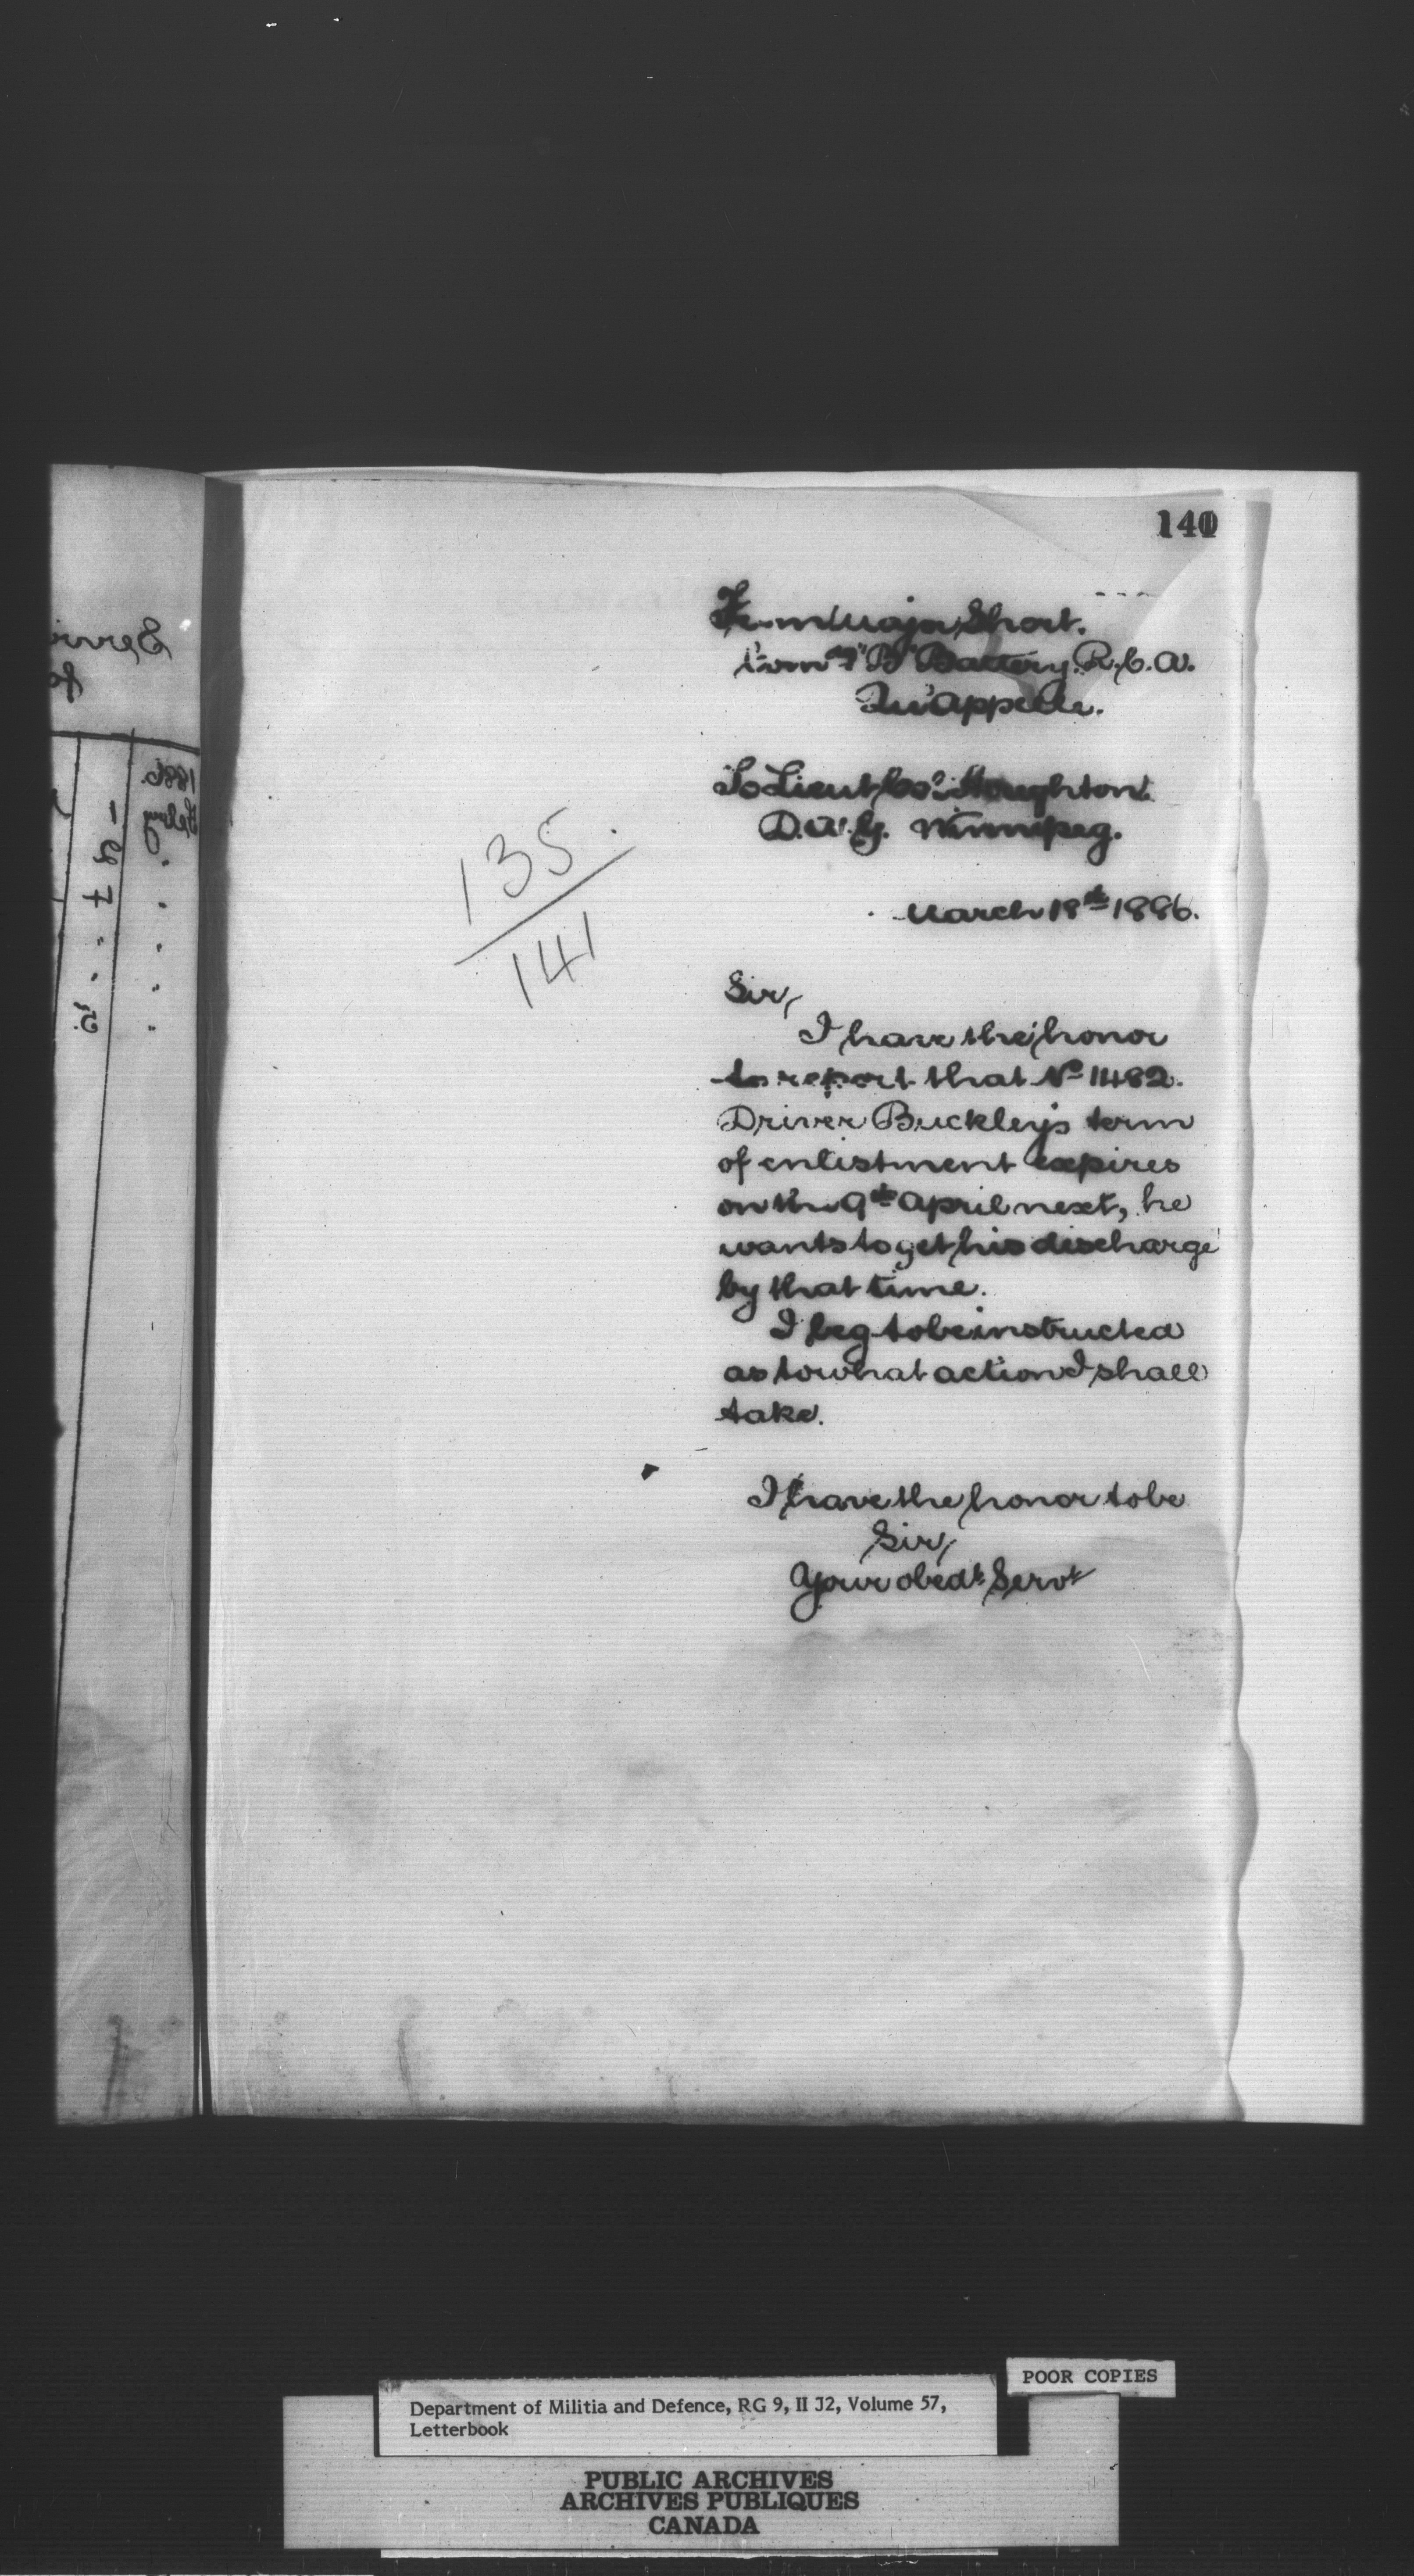 140
From Major Short.
Comdg "B" Battery. R.C.A.
Qu'Appelle.
To Lieut Col. Houghton.
D.A.G. Winnipeg.
135
141
March 18th 1886.
Sir,
I have the honor
to report that No 1482.
Driver Buckley's term
of enlistment expires
on the 9th April next, he
wants to get his discharge
by that time.
I beg to be instructed
as to what action I shall
take.
I have the honor to be
Sir,
Your obedt Servt
POOR COPIES
Department of Militia and Defence, RG 9, II J2, Volume 57,
Letterbook
PUBLIC ARCHIVES
ARCHIVES PUBLIQUES
CANADA